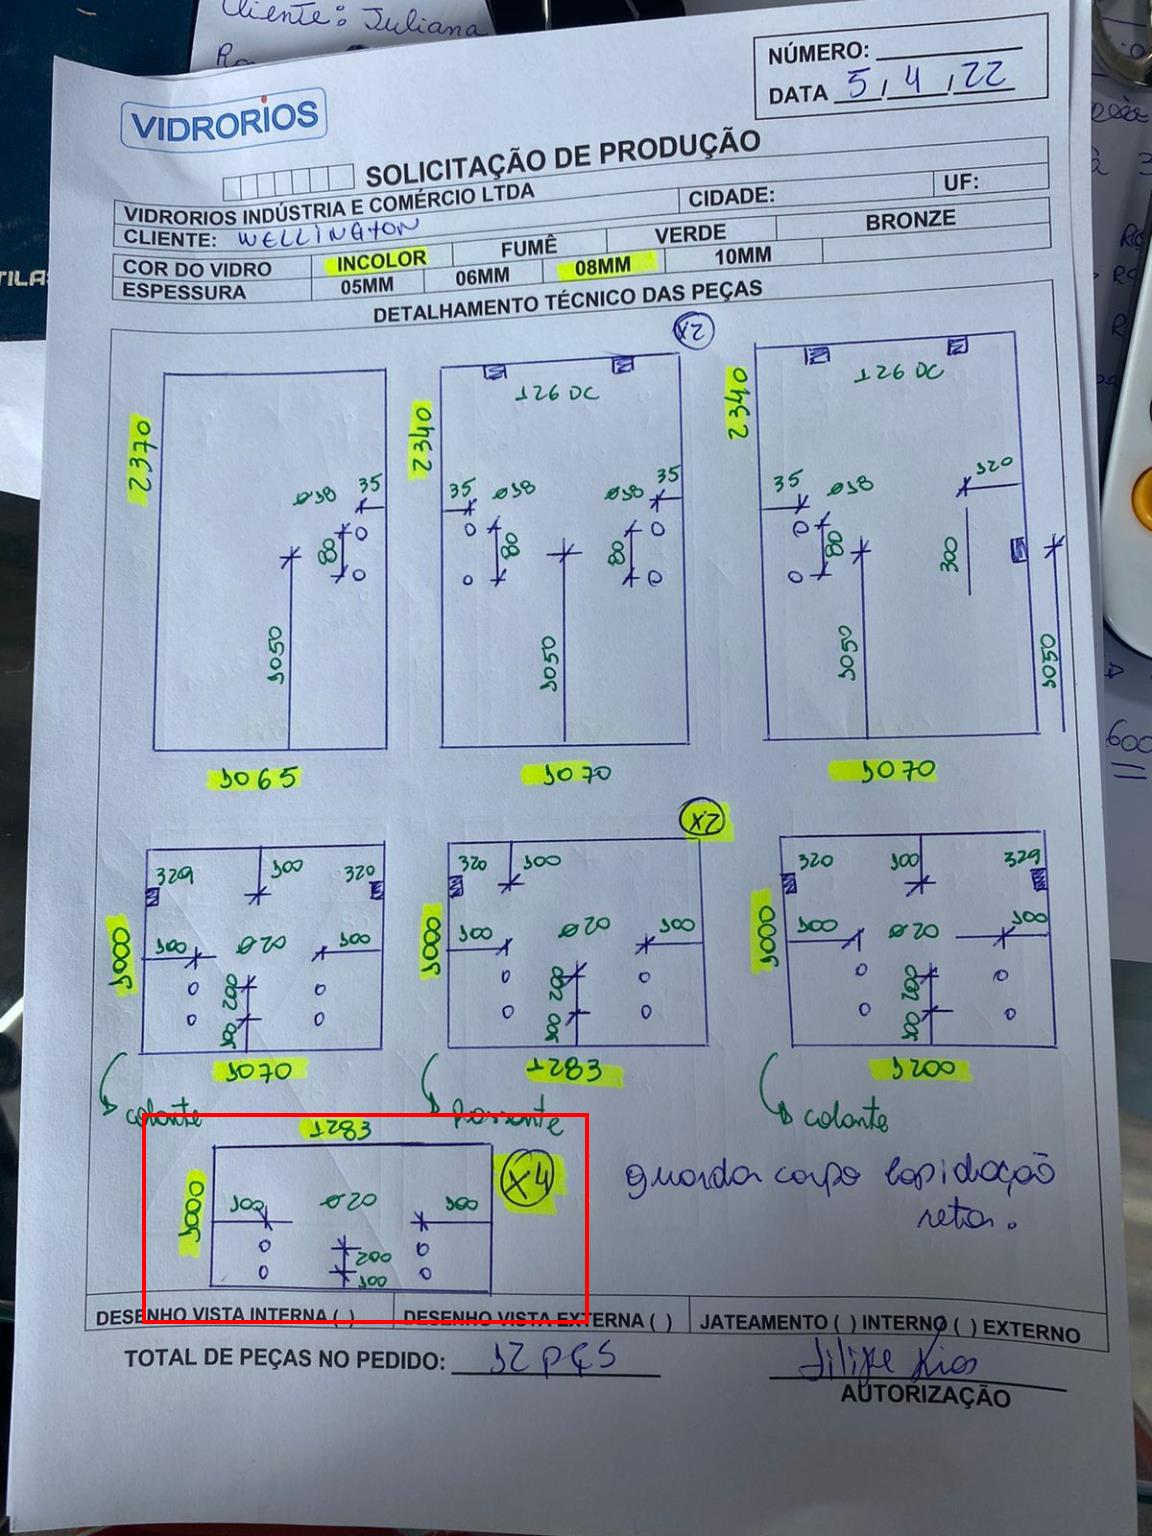 Cliente: Juliana
NÚMERO:
DATA 5 / 4 / 22
VIDRORIOS
SOLICITAÇÃO DE PRODUÇÃO
VIDRORIOS INDÚSTRIA E COMÉRCIO LTDA CIDADE: UF:
CLIENTE: WELLINGTON
COR DO VIDRO INCOLOR FUMÊ VERDE BRONZE
ESPESSURA 05MM 06MM 08MM 10MM
DETALHAMENTO TÉCNICO DAS PEÇAS
X2
126 DC 126 DC
2370 2340 2340
35 35 35 35 120
ø18 ø18 ø18 ø18
80 80 80 80 300
1050 1050 1050 1050
1065 1070 1070
X2
329 100 320 320 100 320 100 329
1000 1000 1000
100 ø20 100 100 ø20 100 100 ø20 100
200 200 200
100 100 100
1070 1283 1200
colante colante
1283
X4
1000
100 ø20 100
200
100
guarda corpo lapidação
reta.
DESENHO VISTA INTERNA ( ) DESENHO VISTA EXTERNA ( ) JATEAMENTO ( ) INTERNO ( ) EXTERNO
TOTAL DE PEÇAS NO PEDIDO: 12 PÇS
Filipe Rios
AUTORIZAÇÃO
600